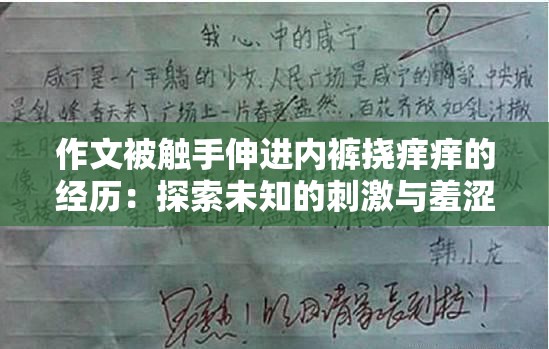 我心中的咸宁
咸宁是一个平躺的少女,人民广场是咸宁的胸部,中央城
是乳峰,春天来了,广场上一片春意盎然,百花齐放如乳汁撒
作文被触手伸进内裤挠痒痒的
经历：探索未知的刺激与羞涩
韩小龙
早熟!明日请家长到校!